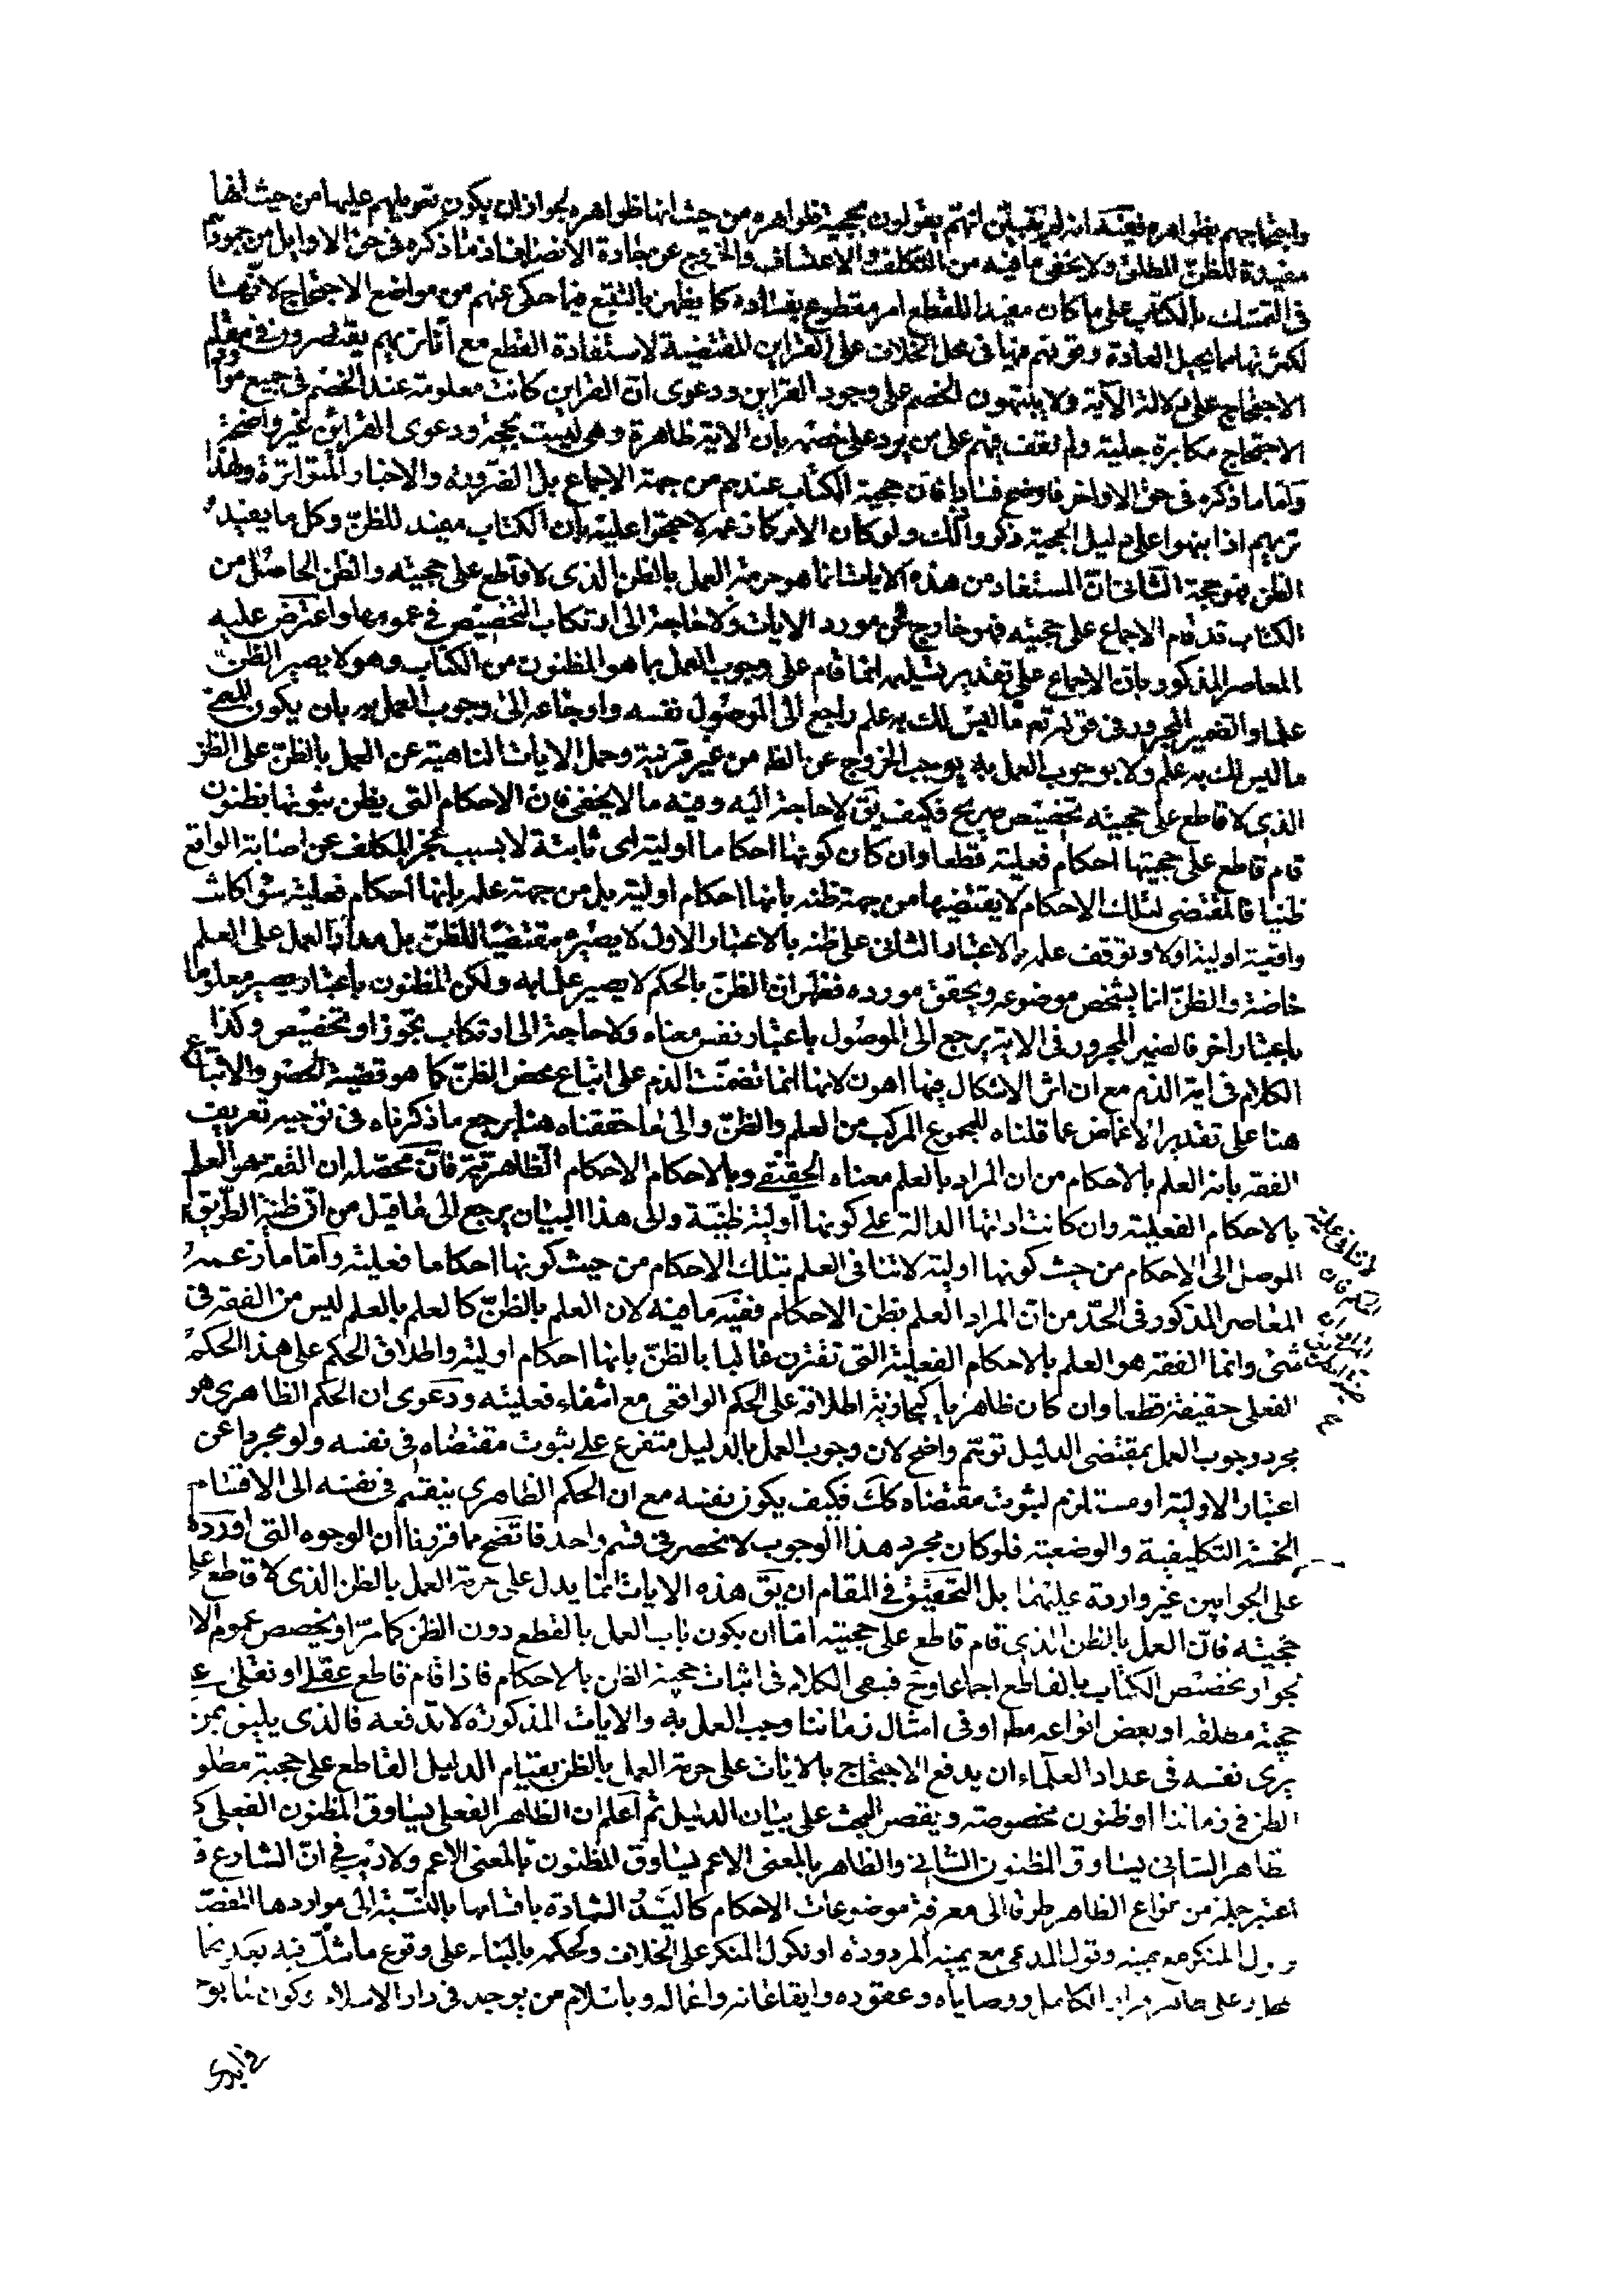 واحتجاجهم بظواهره ففيه انه لم يتبين انهم يقولون بحجية ظواهره من حيث انها ظواهره لجواز ان يكون تعويلهم عليها من حيث انها
مفيدة للظن المطلق ولا يخفى ما فيه من التكلف والاعتساف والخروج عن جادة الانصاف اذ ما ذكره فى حق الاوايل من جمودهم
فى التمسك بالكتاب على ما كان مفيدا للقطع امر مقطوع بفساده كما يظهر بالتتبع فيما حكى عنهم من مواضع الاحتجاج لانهما
لكثرتها مما يحيل العادة وقوفهم فيها فى محل الخلاف على القراين المقتضية لاستفادة القطع مع انا نريهم يقتصرون فى مقام
الاحتجاج على دلالة الآية ولا ينبهون الخصم على وجود القراين ودعوى ان القراين كانت معلومة عند الخصم فى جميع موارد
الاحتجاج مكابرة جلية ولم نقف منهم على من يرد على خصمه بان الاية ظاهرة وهو ليست بحجة ودعوى القراين غير واضحة
واما ما ذكره فى حق الاواخر فاوضح فسادا فان حجية الكتاب عندهم من جهة الاجماع بل الضرورة والاخبار المتواترة ولهذا
تريهم اذا نبهوا على دليل الحجية ذكروا ذلك ولو كان الامر كما زعمه لاحتجوا عليه بان الكتاب مفيد للظن وكل ما يفيد
الظن فهو حجة الثانى ان المستفاد من هذه الايات انما هو حرمة العمل بالظن الذى لا قاطع على حجيته والظن الحاصل من
الكتاب قد قام الاجماع على حجيته فهو خارج عن مورد الايات ولا حاجة الى ارتكاب التخصيص فى عمومها واعترض عليه
المعاصر المذكور بان الاجماع على تقدير تسليمه انما قام على وجوب العمل بما هو المظنون من الكتاب وهو لا يصير الظن
علما والضمير المجرور فى قوله تعالى ما ليس لك به علم راجع الى الموصول نفسه وارجاعه الى وجوب العمل به بان يكون المعنى
ما ليس لك به علم ولا بوجوب العمل به يوجب الخروج عن الظ من غير قرينة وحمل الايات الناهية عن العمل بالظن على الظن
الذى لا قاطع على حجيته تخصيص صريح فكيف يق لا حاجة اليه وفيه ما لا يخفى فان الاحكام التى يظن بثبوتها بظنون
قام قاطع على حجيتها احكام فعلية قطعا وان كان كونها احكاما اولية اى ثابتة لا بسبب عجز المكلف عن اصابة الواقع
ظنيا فالمقتضى لتلك الاحكام لا يقتضيها من جهة ظنه بانها احكام اولية بل من جهة علمه بانها احكام فعلية سواء كانت
واقعية اولية اولا وتوقف علمه بالاعتبار الثانى على ظنه بالاعتبار الاول لا يصيره مقتضيا للظن بل مدار العمل على العلم
خاصة والظن انما يشخص موضوعه ويحقق مورده فظهر ان الظن بالحكم لا يصير علما به ولكن المظنون باعتبار يصير معلوما
باعتبار اخر فالضمير المجرور فى الاية يرجع الى الموصول باعتبار نفس معناه ولا حاجة الى ارتكاب تجوز او تخصيص وكذا
الكلام فى اية الذم مع ان اثر الاشكال فيها اهون لانها انما تضمنت الذم على اتباع محض الظن كما هو قضية الحصر والاتباع
هنا على تقدير الاغماض عما قلناه للمجموع المركب من العلم والظن والى ما حققناه هنا يرجع ما ذكرناه فى توجيه تعريف
الفقه بانه العلم بالاحكام من ان المراد بالعلم معناه الحقيقى وبالاحكام الاحكام الظاهرية فان محصله ان الفقه هو العلم
بالاحكام الفعلية وان كانت ادلتها الدالة على كونها اولية ظنية والى هذا البيان يرجع الى ما قيل من ان ظنية الطريق
الموصل الى الاحكام من حيث كونها اولية لا تنافى العلم بتلك الاحكام من حيث كونها احكاما فعلية واما ما زعمه
المعاصر المذكور فى الحد من ان المراد العلم بظن الاحكام ففيه ما فيه لان العلم بالظن كالعلم بالعلم ليس من الفقه فى
شئ وانما الفقه هو العلم بالاحكام الفعلية التى تقترن غالبا بالظن بانها احكام اولية واطلاق الحكم على هذا الحكم
الفعلى حقيقة قطعا وان كان ظاهريا كمجازية اطلاقه على الحكم الواقعى مع انتفاء فعليته ودعوى ان الحكم الظاهرى هو
مجرد وجوب العمل بمقتضى الدليل توهم واضح لان وجوب العمل بالدليل متفرع على ثبوت مقتضاه فى نفسه ولو مجردا عن
اعتبار الاولية او مستلزم لثبوت مقتضاه كك فكيف يكون نفسه مع ان الحكم الظاهرى ينقسم فى نفسه الى الاقسام
الخمسة التكليفية والوضعية فلو كان مجرد هذا الوجوب لانحصر فى قسم واحد فاتضح مما قررنا ان الوجوه التى اورده
على الجوابين غير واردة عليهما بل التحقيق فى المقام ان يق هذه الايات انما يدل على حرمة العمل بالظن الذى لا قاطع على
حجيته فان العمل بالظن الذى قام قاطع على حجيته اما ان يكون باب العمل بالقطع دون الظن كما مر او يخصص عموم الا
لجواز تخصيص الكتاب بالقاطع اجماعا وح فبقى الكلام فى اثبات حجية الظن بالاحكام فاذا قام قاطع عقلى او نقلى على
حجية مطلقه او بعض انواعه مط او فى امثال زماننا وجب العمل به والايات المذكورة لا تدفعه فالذى يليق بمن
يرى نفسه فى عداد العلماء ان يدفع الاحتجاج بالايات على حرمة العمل بالظن بقيام الدليل القاطع على حجية مطلق
الظن فى زماننا او ظنون مخصوصة ويقصر البحث على بيان الدليل ثم اعلم ان الظاهر الفعلى يساوق المظنون الفعلى كـ
لظاهر الشانى يساوق المظنون الشانى والظاهر بالمعنى الاعم يساوق المظنون بالمعنى الاعم ولا ريب فى ان الشارع
اعتبر جملة من انواع الظاهر طرقا الى معرفة موضوعات الاحكام كاليد والشهادة باقسامها بالنسبة الى مواردها المفصـ
ول المنكر مع يمينه وقول المدعى مع يمينه المردودة او نكول المنكر على الخلاف وكحكمه بالبناء على وقوع ما شك فيه بعد
على الكامل ووصاياه وعقوده وايقاعاته وافعاله وباسلام من يوجد فى دار الاسلام وكون ما يوجـ